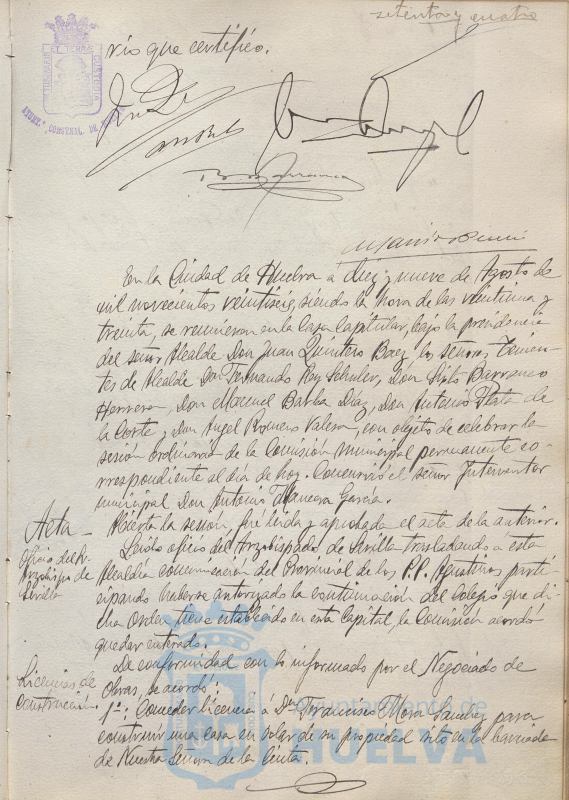 setenta y cuatro
rio que certifico.
En la Ciudad de Huelva á diez y nueve de Agosto de
mil novecientos veintiseis, siendo la hora de las veintiuna y
treinta, se reunieron en la Casa Capitular, bajo la presidencia
del señor Alcalde Don Juan Quintero Baez los señores Tenien-
tes de Alcalde Don Fernando Rey Schuler, Don Sixto Berrocco
Herrera, Don Manuel Barba Diaz, Don Antonio Plata de
la Corte y Don Angel Romero Valera, con objeto de celebrar la
sesión ordinaria de la Comisión municipal permanente co-
rrespondiente al dia de hoy. Concurrió el señor Interventor
municipal Don Antonio García.
Acta
Abierta la sesión, fué leida y aprobada el acta de la anterior.
Oficio del
Arzobispo de
Sevilla
Leido oficio del Arzobispado de Sevilla trasladando á esta
Alcaldía comunicación del Provincial de los P.P. Agustinos parti-
cipando haberse autorizado la continuación del Colegio que di-
cha Orden tiene establecido en esta Capital, la Comisión acordó
quedar enterada.
Licencias de
construcción
De conformidad con lo informado por el Negociado de
Obras, se acordó:
1º: Conceder licencia á Dn Francisco Mora Sanchez para
construir una casa en solar de su propiedad sito en la barriada
de Nuestra Señora de la Cinta.
Ayuntamiento de
HUELVA